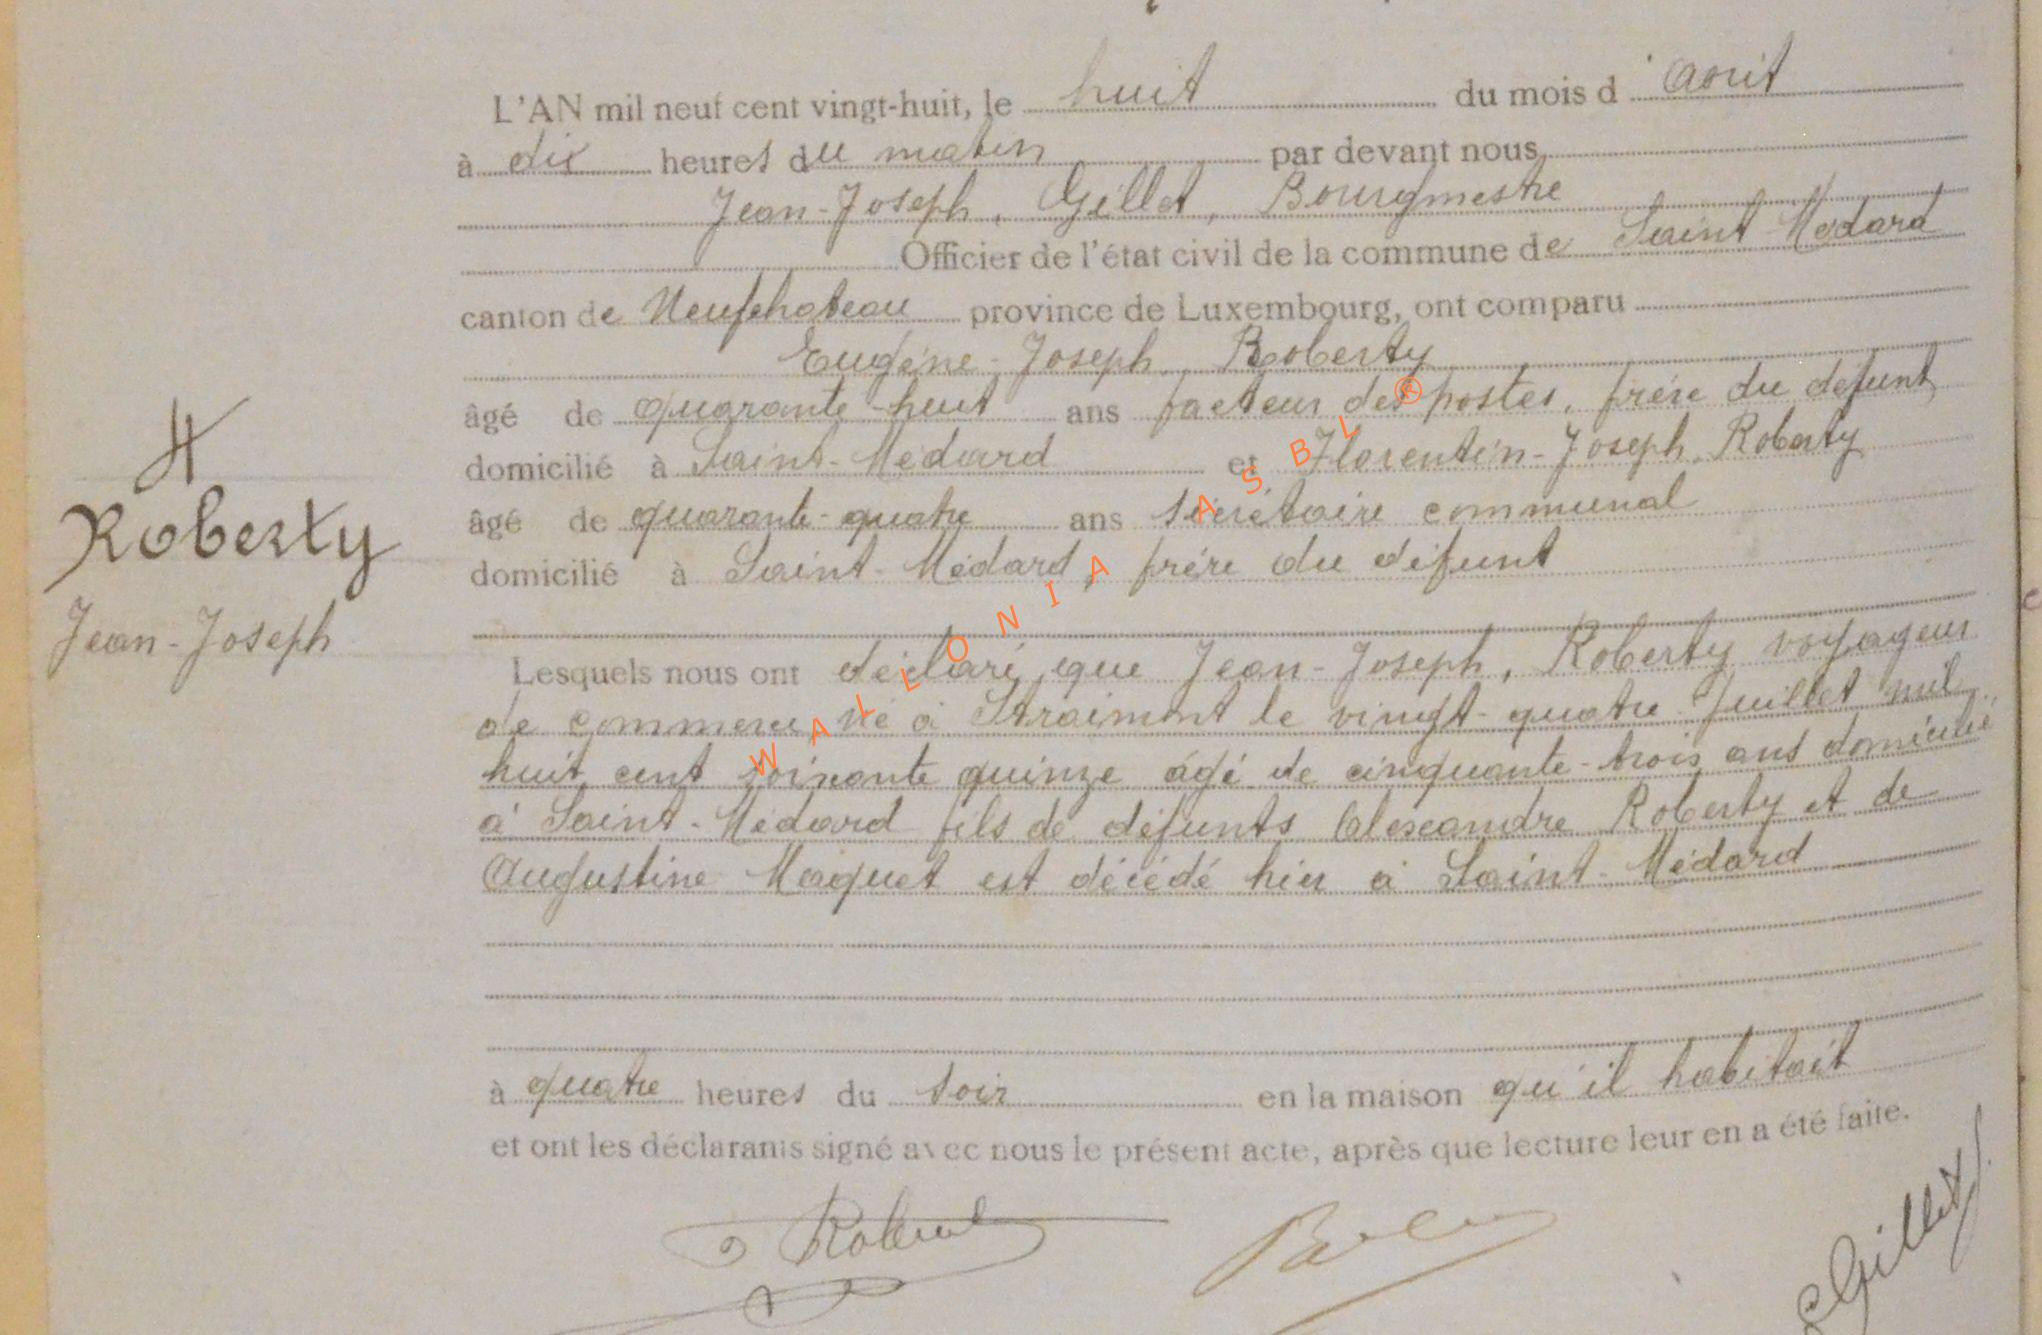 L'AN mil neuf cent vingt-huit, le huit du mois d'août
à dix heures du matin par devant nous
Jean-Joseph, Gillet, Bourgmestre
Officier de l'état civil de la commune de Saint-Médard
canton de Neufchateau province de Luxembourg, ont comparu
Eugène-Joseph, Roberty
âgé de quarante-huit ans facteur des postes, frère du défunt
domicilié à Saint-Médard et Florentin-Joseph, Roberty
âgé de quarante-quatre ans secrétaire communal
domicilié à Saint-Médard, frère du défunt
4
Roberty
Jean-Joseph
Lesquels nous ont déclaré que Jean-Joseph, Roberty voyageur
de commerce, né à Straimont le vingt-quatre juillet mil
huit cent soixante quinze âgé de cinquante-trois ans domicilié
à Saint-Médard fils de défunts Alexandre Roberty et de
Augustine Maquet est décédé hier à Saint-Médard
à quatre heures du soir en la maison qu'il habitait
et ont les déclarants signé avec nous le présent acte, après que lecture leur en a été faite.
Gillet J.
WALLONIA ASBL ®